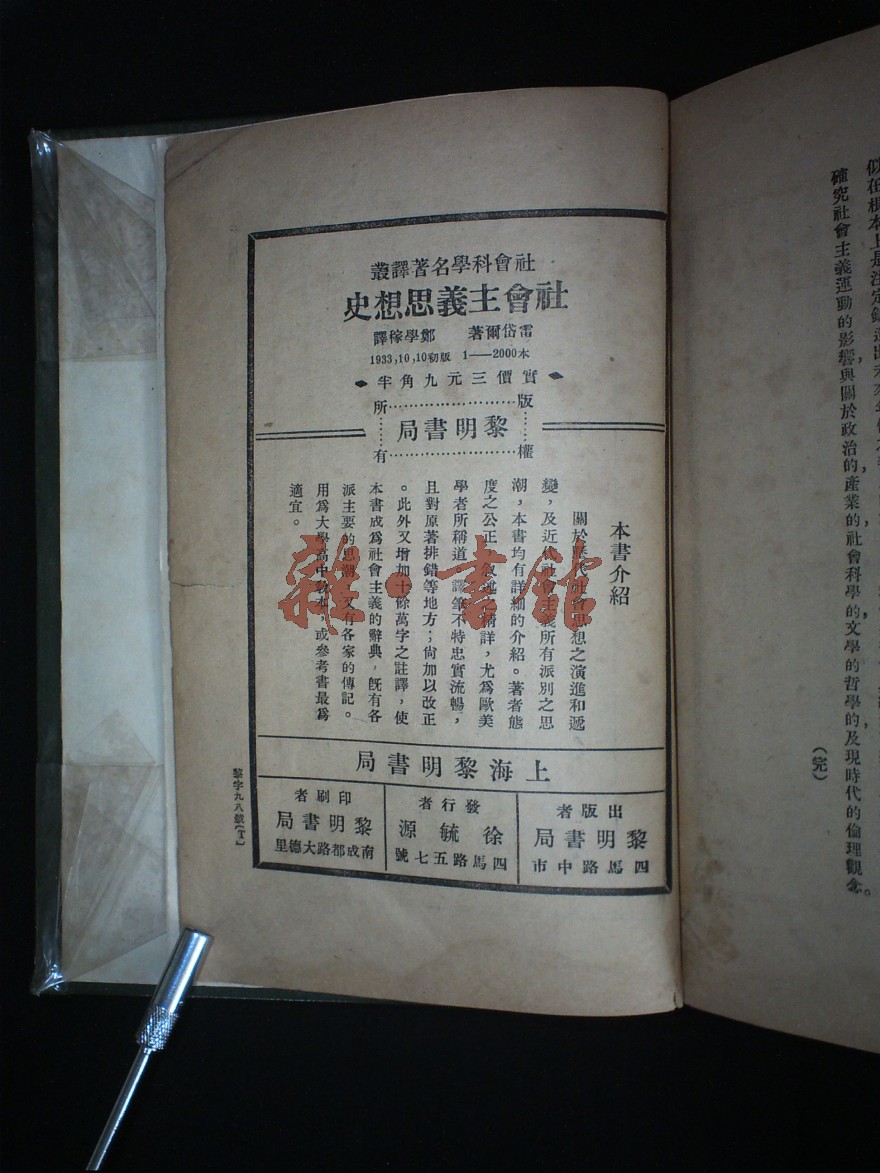 似在根本上是注定
確究社會主義運動的影響，與關於政治的，產業的，社會科學的，文學的，哲學的，及現時代的倫理觀念。
（完）
社會科學名著譯叢
社會主義思想史
雷岱爾著　鄭學稼譯
1933,10,10初版　1——2000本
實價三元九角半
版權所有
黎明書局
本書介紹
關於歷代社會思想之演進和遞
變，及近代社會主義所有派別之思
潮，本書均有詳細的介紹。著者態
度之公正，敘述之精詳，尤爲歐美
學者所稱道，譯筆不特忠實流暢，
且對原著排錯等地方；尙加以改正
。此外又增加十餘萬字之註譯，使
本書成爲社會主義的辭典，旣有各
派主要的思潮，又有各家的傳記。
用爲大學高中敎本，或參考書最爲
適宜。
上海黎明書局
出版者
黎明書局
四馬路中市
發行者
徐毓源
四馬路五七號
印刷者
黎明書局
南成都路大德里
黎字九八號（T）
雜·書館